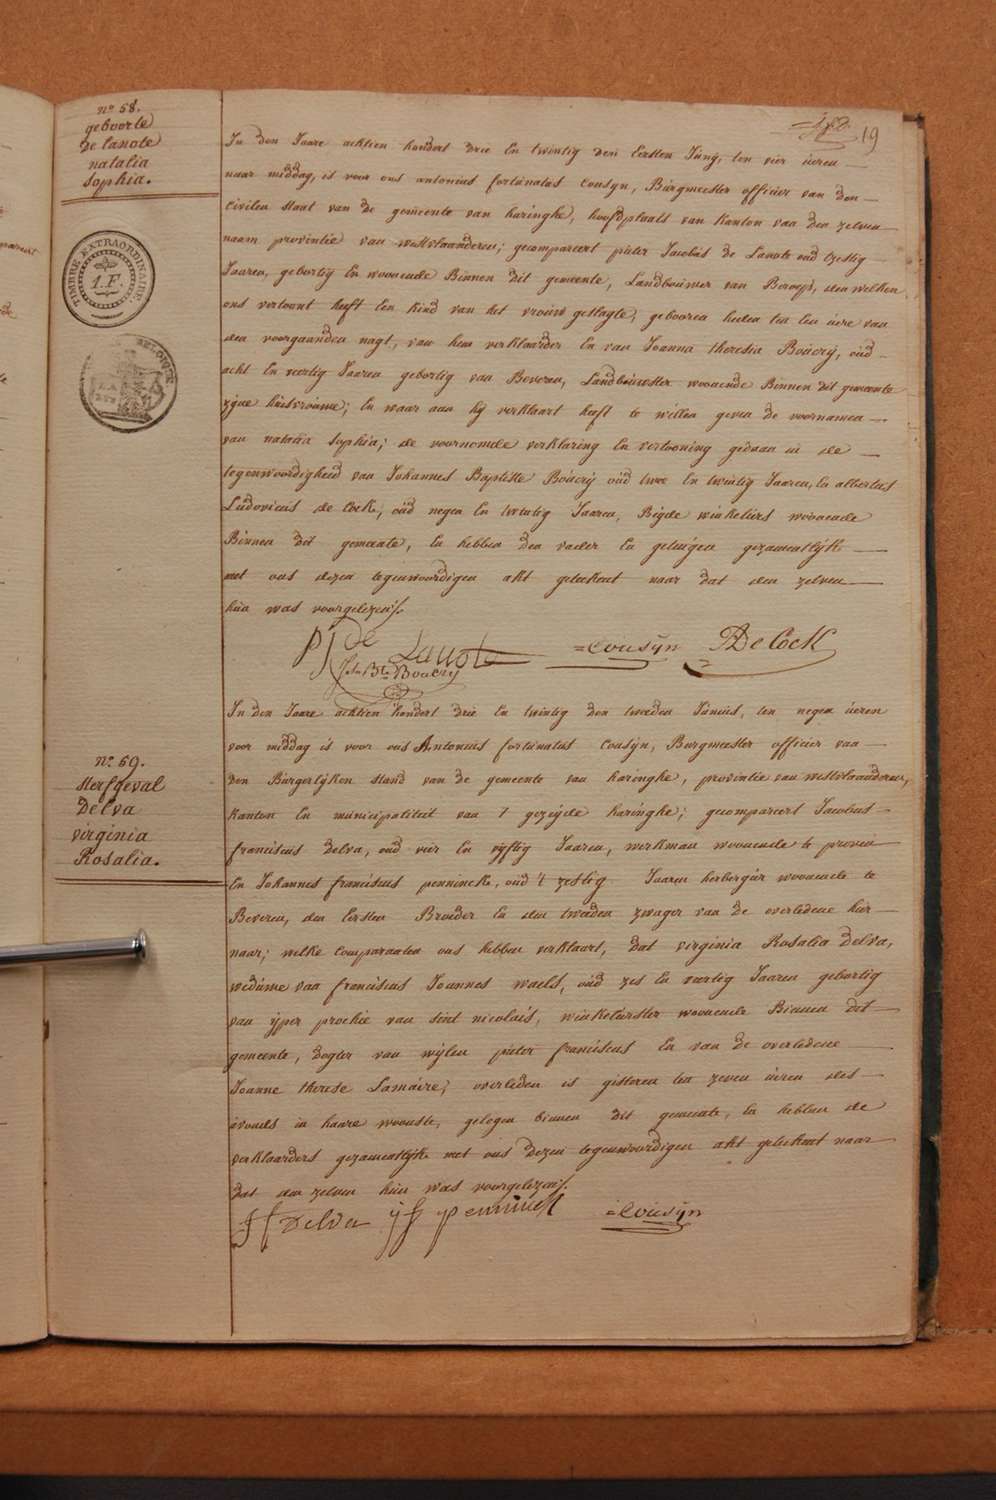 19
nº 58.
geboorte
de Lanote
natalia
Sophia.
TIMBRE EXTRAORDINAIRE
1.F.
In den Jaare achtien hondert drie En twintig den Eersten Juny, ten vier ùeren
naar middag, is voor ons antonius fortùnatus Cousyn, Bùrgmeester officier van den
Civilen staat van de gemeente van haringhe, hoofdplaats van Kanton van den zelven
naam provintie van westvlaanderen; gecompareert pieter Jacobùs de Lanote oud tzestig
Jaaren, gebortig En woonende Binnen dit gemeente, Landbouwer van Beroep, den welken
ons vertoont heeft Een kind van het vrouw geslagte, gebooren heden ten Een ùere van
den voorgaanden nagt, van hem verklaarder En van Joanna theresia Boùcrÿ, oùd
acht En veertig Jaaren gebortig van Beveren, Landbouwster woonende Binnen dit gemeente
zÿne hùisvroùwe; En waar aan hÿ verklaart heeft te willen geven de voornamen
van natalia sophia; de voornomde verklaring En vertooning gedaan in de
tegenwoordigheid van Johannes Baptiste Boùcrÿ oùd twee En twintig Jaaren, En albertus
Ludovicùs de Cock, oùd negen En twintig Jaaren, Bÿde winkeliers woonende
Binnen dit gemeente, En hebben den vader En getuigen gezamentlÿk
met ons dezen tegenwoordigen akt geteekent naar dat den zelven
hùn was voorgelezen/.
pj de Lanote =Cousÿn DeCock
Jⁿ Bte Boucry
nº 59.
sterfgeval
Delva
virginia
Rosalia.
In den Jaare achtien hondert drie En twintig den tweeden Jùniùs, ten negen ùeren
voor middag is voor ons Antoniùs fortùnatus Cousÿn, Burgmeester officier van
den Bùrgerlÿken stand van de gemeente van haringhe, provintie van westvlaanderen,
Kanton En mùnicipaliteit van 't gezeÿde haringhe; gecompareert Jacobus
franciscus Delva, oud vier En vÿftig Jaaren, werkman woonende te proven
En Johannes franciscus penninck, oùd 't zestig Jaaren herbergier woonende te
Beveren, den Eersten Broeder En den tweeden zwager van de overledene hier
naar; welke Comparanten ons hebben verklaart, dat virginia Rosalia Delva,
wedùwe van franciscus Joannes waels, oùd zes En veertig Jaaren gebortig
van ÿper prochie van sint nicolaùs, winkelierster woonende Binnen dit
gemeente, dogter van wÿlen pieter franciscus En van de overledene
Joanne therese Lamaire; overleden is gisteren ten zeven ùeren des
avonds in haare woonste, gelegen binnen dit gemeente, En hebben de
verklaarders gezamentlÿk met ons dezen tegenwoordigen akt geteekent naar
dat den zelven hùn was voorgelezen/.
JF Delva jf penninck =Coùsÿn